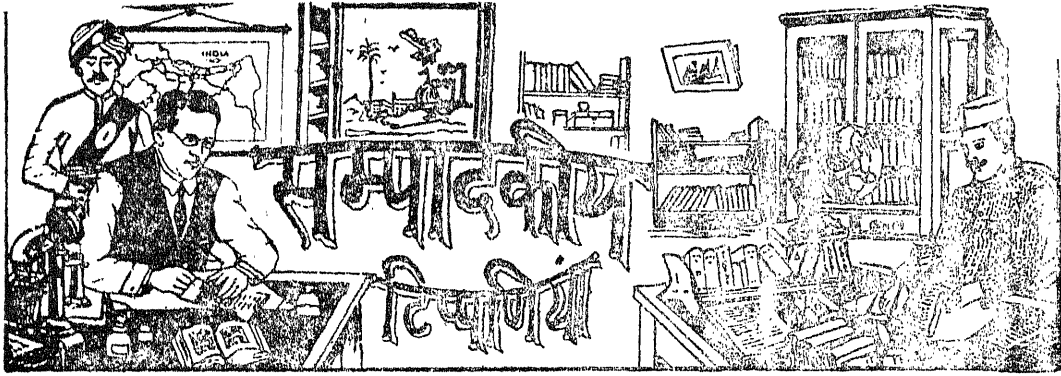 INDIA
सम्पादकीय
टिप्पणी